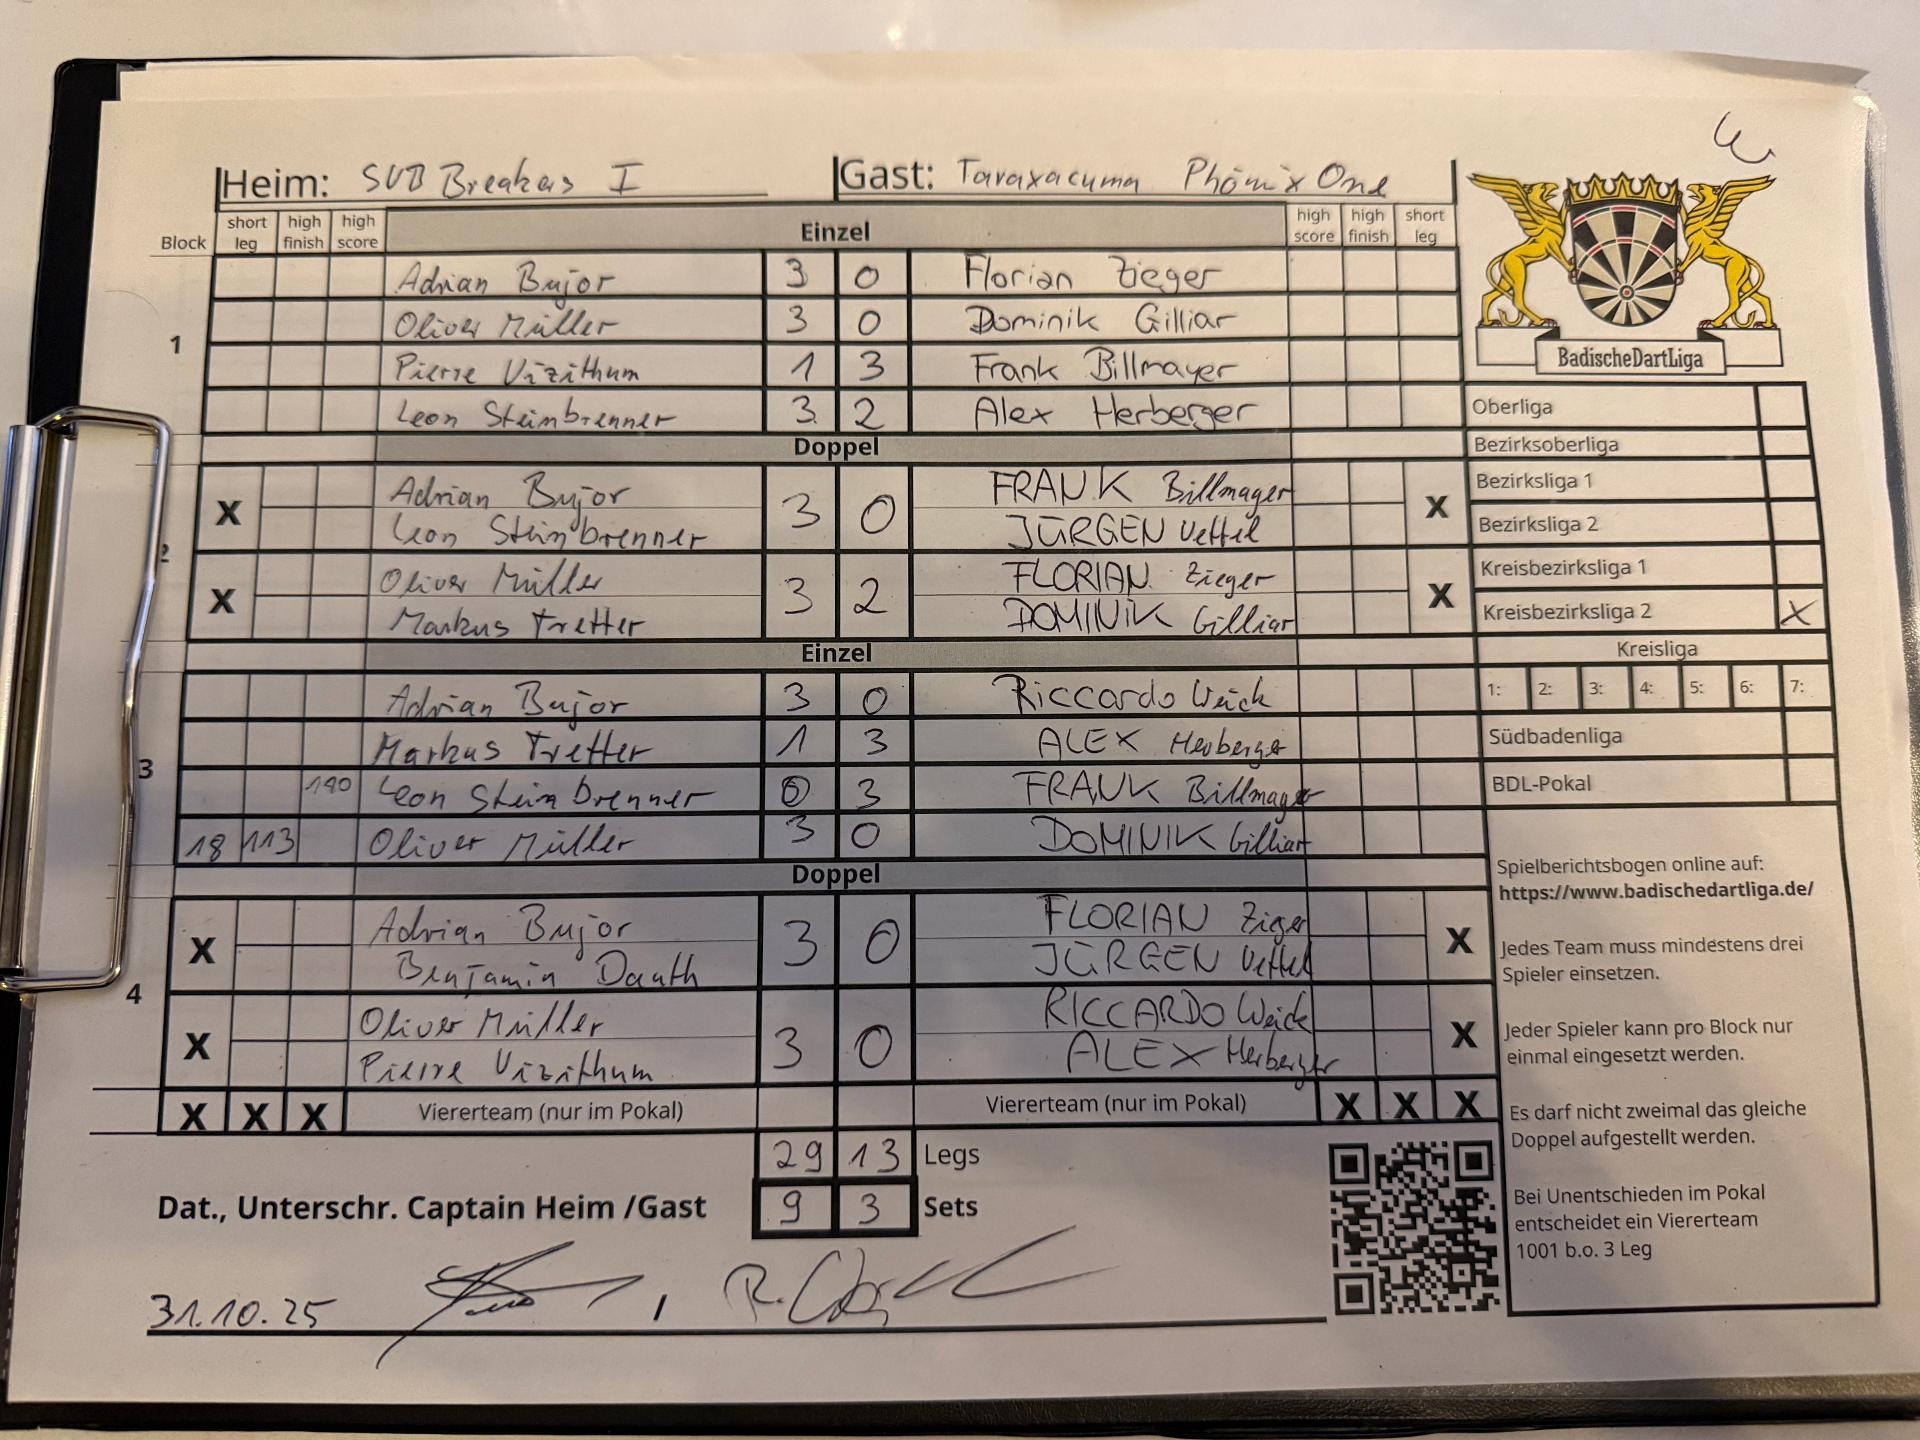 Heim: SVB Breakers I Gast: Taraxacuma Phönix One
Block short leg high finish high score Einzel high score high finish short leg
1
Adrian Bujor 3 0 Florian Zieger
Oliver Müller 3 0 Dominik Gilliar
Pierre Vizithum 1 3 Frank Billmayer
Leon Steinbrenner 3 2 Alex Herberger
Doppel
2
X Adrian Bujor 3 0 FRANK Billmayer X
Leon Steinbrenner JÜRGEN Vettel
X Oliver Müller 3 2 FLORIAN Zieger X
Markus Tretter DOMINIK Gilliar
Einzel
3
Adrian Bujor 3 0 Riccardo Weick
Markus Tretter 1 3 ALEX Herberger
180 Leon Steinbrenner 0 3 FRANK Billmayer
18 113 Oliver Müller 3 0 DOMINIK Gilliar
Doppel
4
X Adrian Bujor 3 0 FLORIAN Zieger X
Benjamin Dauth JÜRGEN Vettel
X Oliver Müller 3 0 RICCARDO Weick X
Pierre Vizithum ALEX Herberger
X X X Viererteam (nur im Pokal) Viererteam (nur im Pokal) X X X
29 13 Legs
Dat., Unterschr. Captain Heim /Gast 9 3 Sets
31.10.25 /
BadischeDartLiga
Oberliga
Bezirksoberliga
Bezirksliga 1
Bezirksliga 2
Kreisbezirksliga 1
Kreisbezirksliga 2 X
Kreisliga
1: 2: 3: 4: 5: 6: 7:
Südbadenliga
BDL-Pokal
Spielberichtsbogen online auf:
https://www.badischedartliga.de/
Jedes Team muss mindestens drei
Spieler einsetzen.
Jeder Spieler kann pro Block nur
einmal eingesetzt werden.
Es darf nicht zweimal das gleiche
Doppel aufgestellt werden.
Bei Unentschieden im Pokal
entscheidet ein Viererteam
1001 b.o. 3 Leg